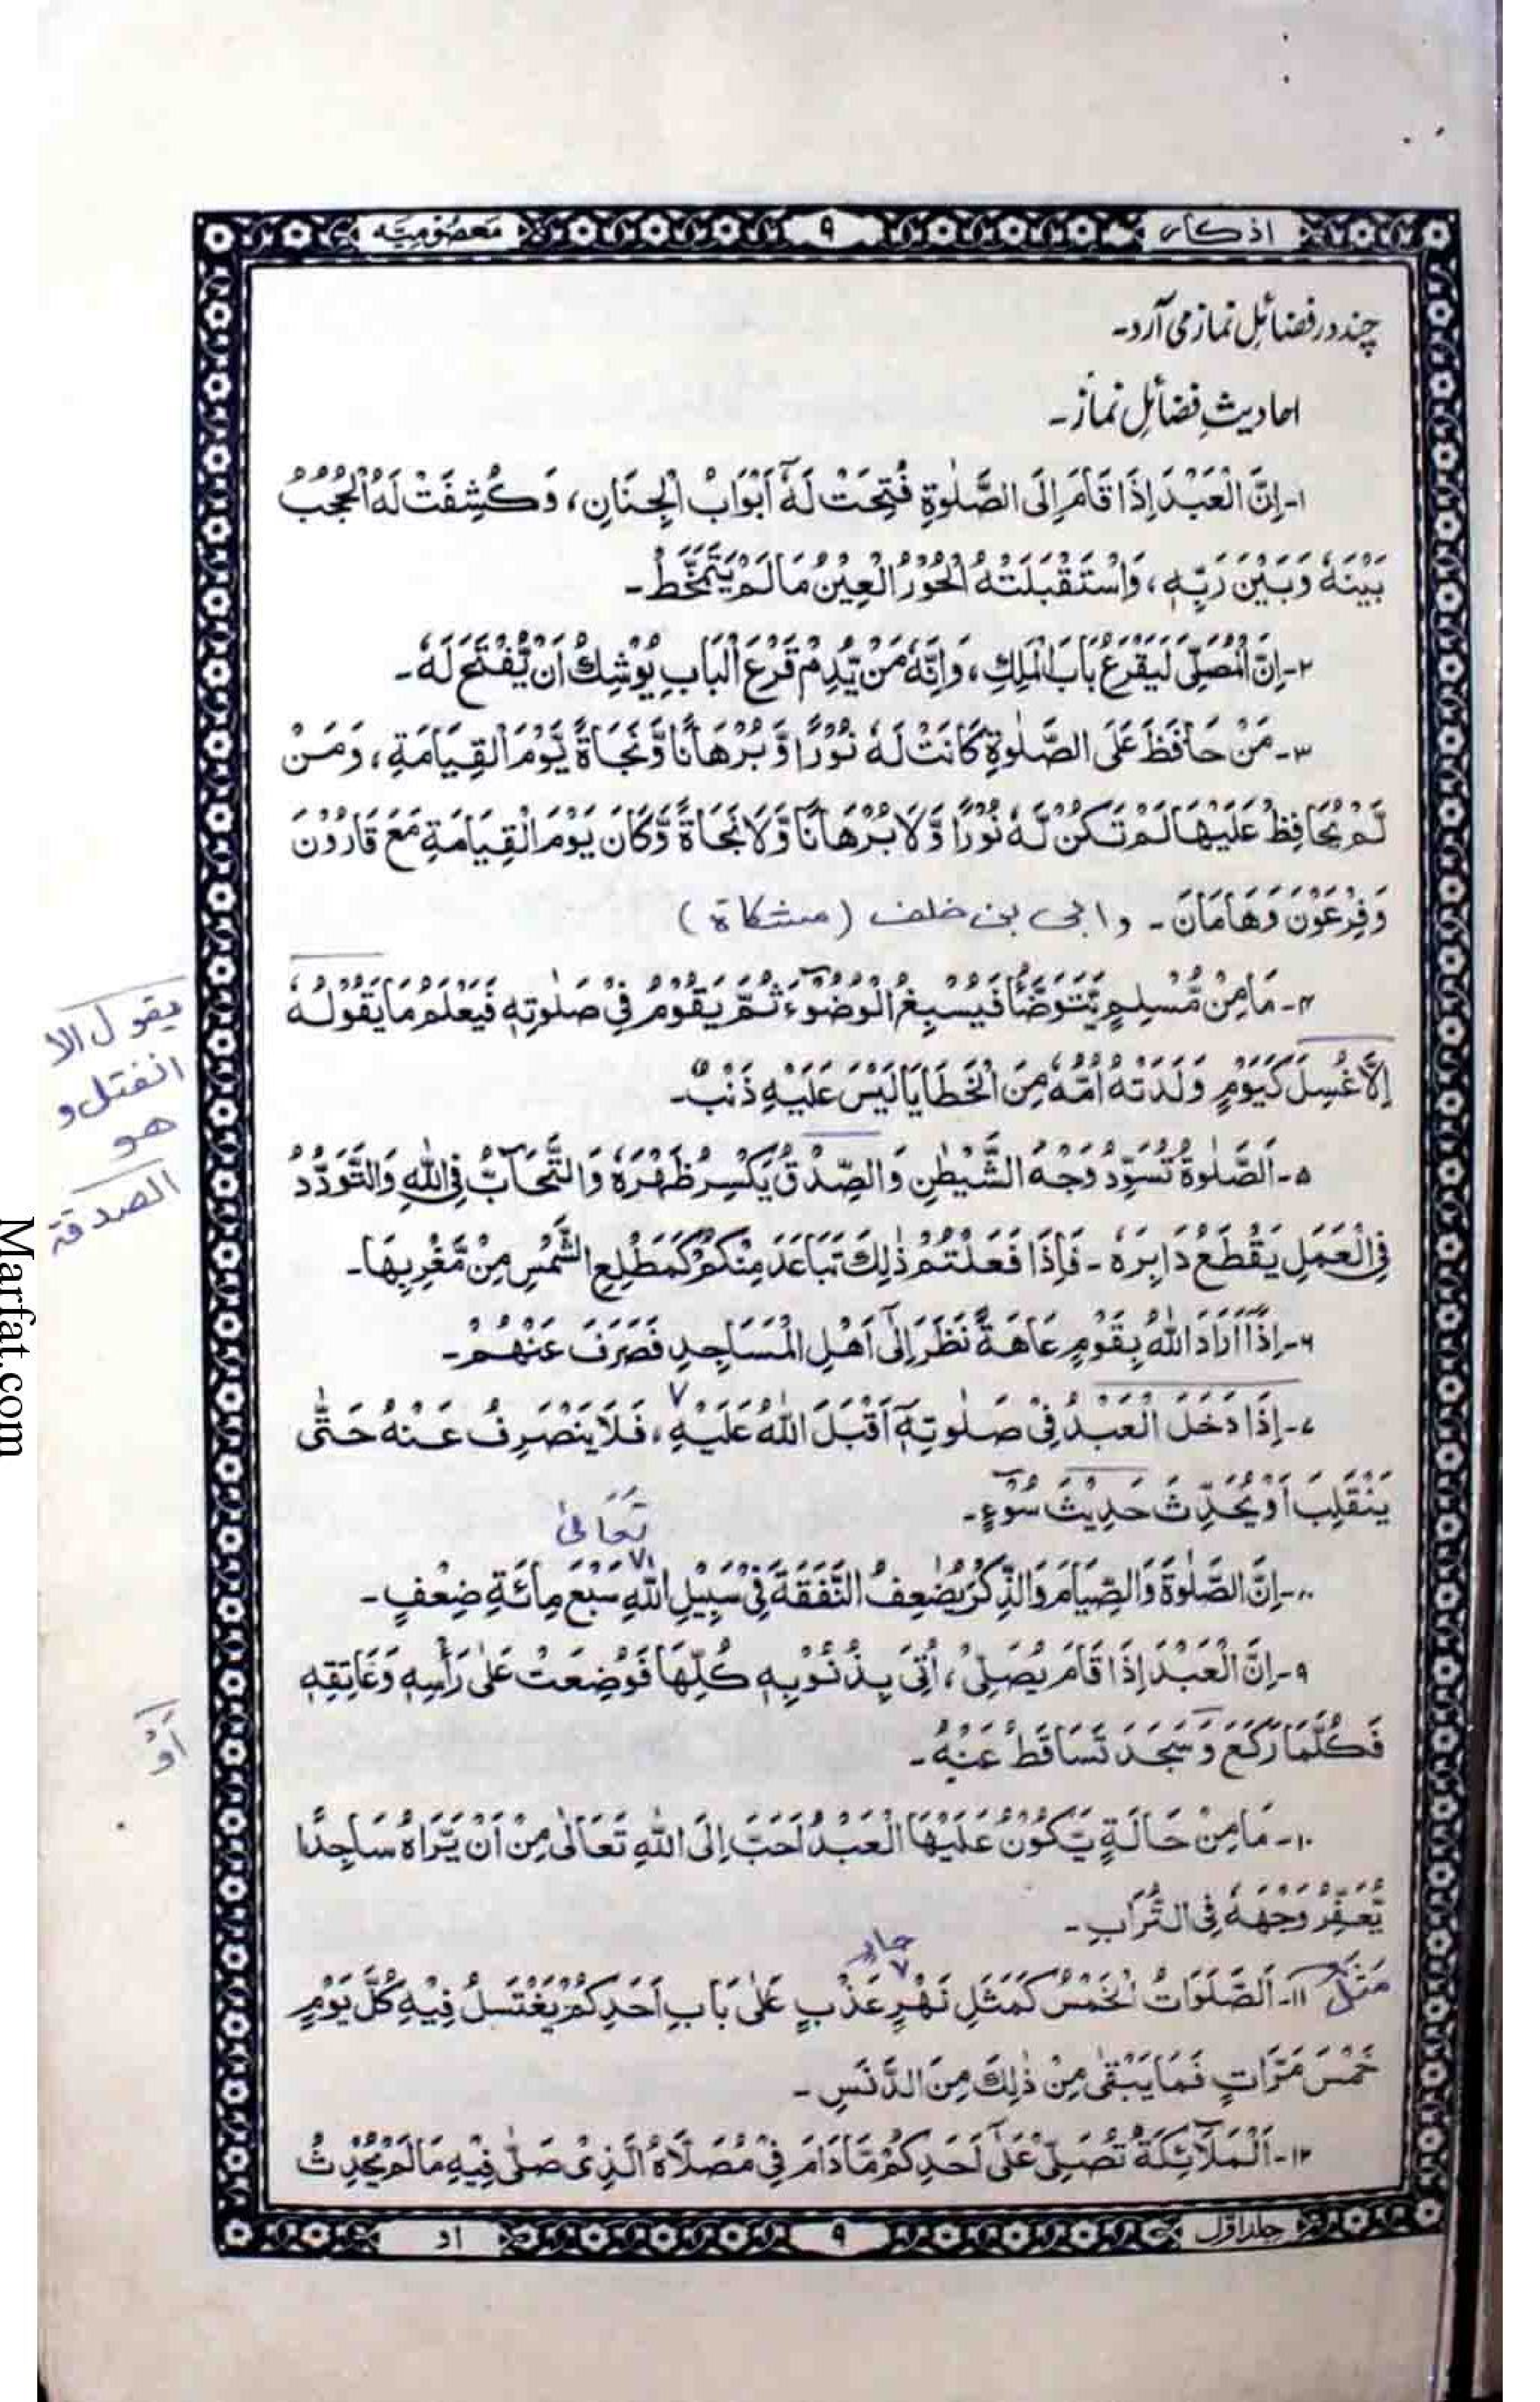 اذکار ۹ معصومیہ
چند در فضائلِ نماز می آرد۔
احادیثِ فضائلِ نماز۔
۱۔ اِنَّ الْعَبْدَ اِذَا قَامَ اِلَی الصَّلٰوةِ فُتِحَتْ لَهٗٓ اَبْوَابُ الْجِنَانِ، وَكُشِفَتْ لَهُ الْحُجُبُ
بَيْنَهٗ وَبَيْنَ رَبِّهٖ، وَاسْتَقْبَلَتْهُ الْحُوْرُ الْعِيْنُ مَا لَمْ يَتَمَخَّطْ۔
۲۔ اِنَّ الْمُصَلِّیَ لَيَقْرَعُ بَابَ الْمَلِكِ، وَاِنَّهٗ مَنْ يُّدِمْ قَرْعَ الْبَابِ يُوْشِكُ اَنْ يُّفْتَحَ لَهٗ۔
۳۔ مَنْ حَافَظَ عَلَی الصَّلٰوةِ كَانَتْ لَهٗ نُوْرًا وَّبُرْهَانًا وَّنَجَاةً يَّوْمَ الْقِيَامَةِ، وَمَنْ
لَّمْ يُحَافِظْ عَلَيْهَا لَمْ تَكُنْ لَّهٗ نُوْرًا وَّلَا بُرْهَانًا وَّلَا نَجَاةً وَّكَانَ يَوْمَ الْقِيَامَةِ مَعَ قَارُوْنَ
وَفِرْعَوْنَ وَهَامَانَ۔ وابی بن خلف (مشکاة)
۴۔ مَا مِنْ مُّسْلِمٍ يَّتَوَضَّأُ فَيُسْبِغُ الْوُضُوْٓءَ ثُمَّ يَقُوْمُ فِيْ صَلٰوتِهٖ فَيَعْلَمُ مَا يَقُوْلُهٗ
يقول الا
انفتل و
هو
اِلَّا غُسِلَ كَيَوْمٍ وَلَدَتْهُ اُمُّهٗ مِنَ الْخَطَايَا لَيْسَ عَلَيْهِ ذَنْبٌ۔
الصدقة
۵۔ اَلصَّلٰوةُ تُسَوِّدُ وَجْهَ الشَّيْطٰنِ وَالصِّدْقُ يَكْسِرُ ظَهْرَهٗ وَالتَّحَآبُّ فِی اللّٰهِ وَالتَّوَدُّدُ
فِی الْعَمَلِ يَقْطَعُ دَابِرَهٗ۔ فَاِذَا فَعَلْتُمْ ذٰلِكَ تَبَاعَدَ مِنْكُمْ كَمَطْلِعِ الشَّمْسِ مِنْ مَّغْرِبِهَا۔
۶۔ اِذَٓا اَرَادَ اللّٰهُ بِقَوْمٍ عَاهَةً نَظَرَ اِلٰٓی اَهْلِ الْمَسَاجِدِ فَصَرَفَ عَنْهُمْ۔
۷۔ اِذَا دَخَلَ الْعَبْدُ فِيْ صَلٰوتِهٖٓ اَقْبَلَ اللّٰهُ عَلَيْهِ، فَلَا يَنْصَرِفُ عَنْهُ حَتّٰی
يَنْقَلِبَ اَوْ يُحَدِّثَ حَدِيْثَ سُوْٓءٍ۔
تَعَالیٰ
۸۔ اِنَّ الصَّلٰوةَ وَالصِّيَامَ وَالذِّكْرَ يُضٰعِفُ النَّفَقَةَ فِيْ سَبِيْلِ اللّٰهِ سَبْعَ مِائَةِ ضِعْفٍ۔
۹۔ اِنَّ الْعَبْدَ اِذَا قَامَ يُصَلِّيْ، اُتِیَ بِذُنُوْبِهٖ كُلِّهَا فَوُضِعَتْ عَلٰی رَأْسِهٖ وَعَاتِقِهٖ
فَكُلَّمَا رَكَعَ وَسَجَدَ تَسَاقَطَ عَنْهُ۔
اَوْ
۱۰۔ مَا مِنْ حَالَةٍ يَّكُوْنُ عَلَيْهَا الْعَبْدُ اَحَبَّ اِلَی اللّٰهِ تَعَالٰی مِنْ اَنْ يَّرَاهُ سَاجِدًا
يُّعَفِّرُ وَجْهَهٗ فِی التُّرَابِ۔
جار
مَثَلُ ۱۱۔ اَلصَّلَوَاتُ الْخَمْسُ كَمَثَلِ نَهْرٍ عَذْبٍ عَلٰی بَابِ اَحَدِكُمْ يَغْتَسِلُ فِيْهِ كُلَّ يَوْمٍ
خَمْسَ مَرَّاتٍ فَمَا يَبْقٰی مِنْ ذٰلِكَ مِنَ الدَّنَسِ۔
۱۲۔ اَلْمَلَآئِكَةُ تُصَلِّیْ عَلٰٓی اَحَدِكُمْ مَّا دَامَ فِيْ مُصَلَّاهُ الَّذِیْ صَلّٰی فِيْهِ مَا لَمْ يُحْدِثْ
جلد اوّل ۹ اد
Marfat.com